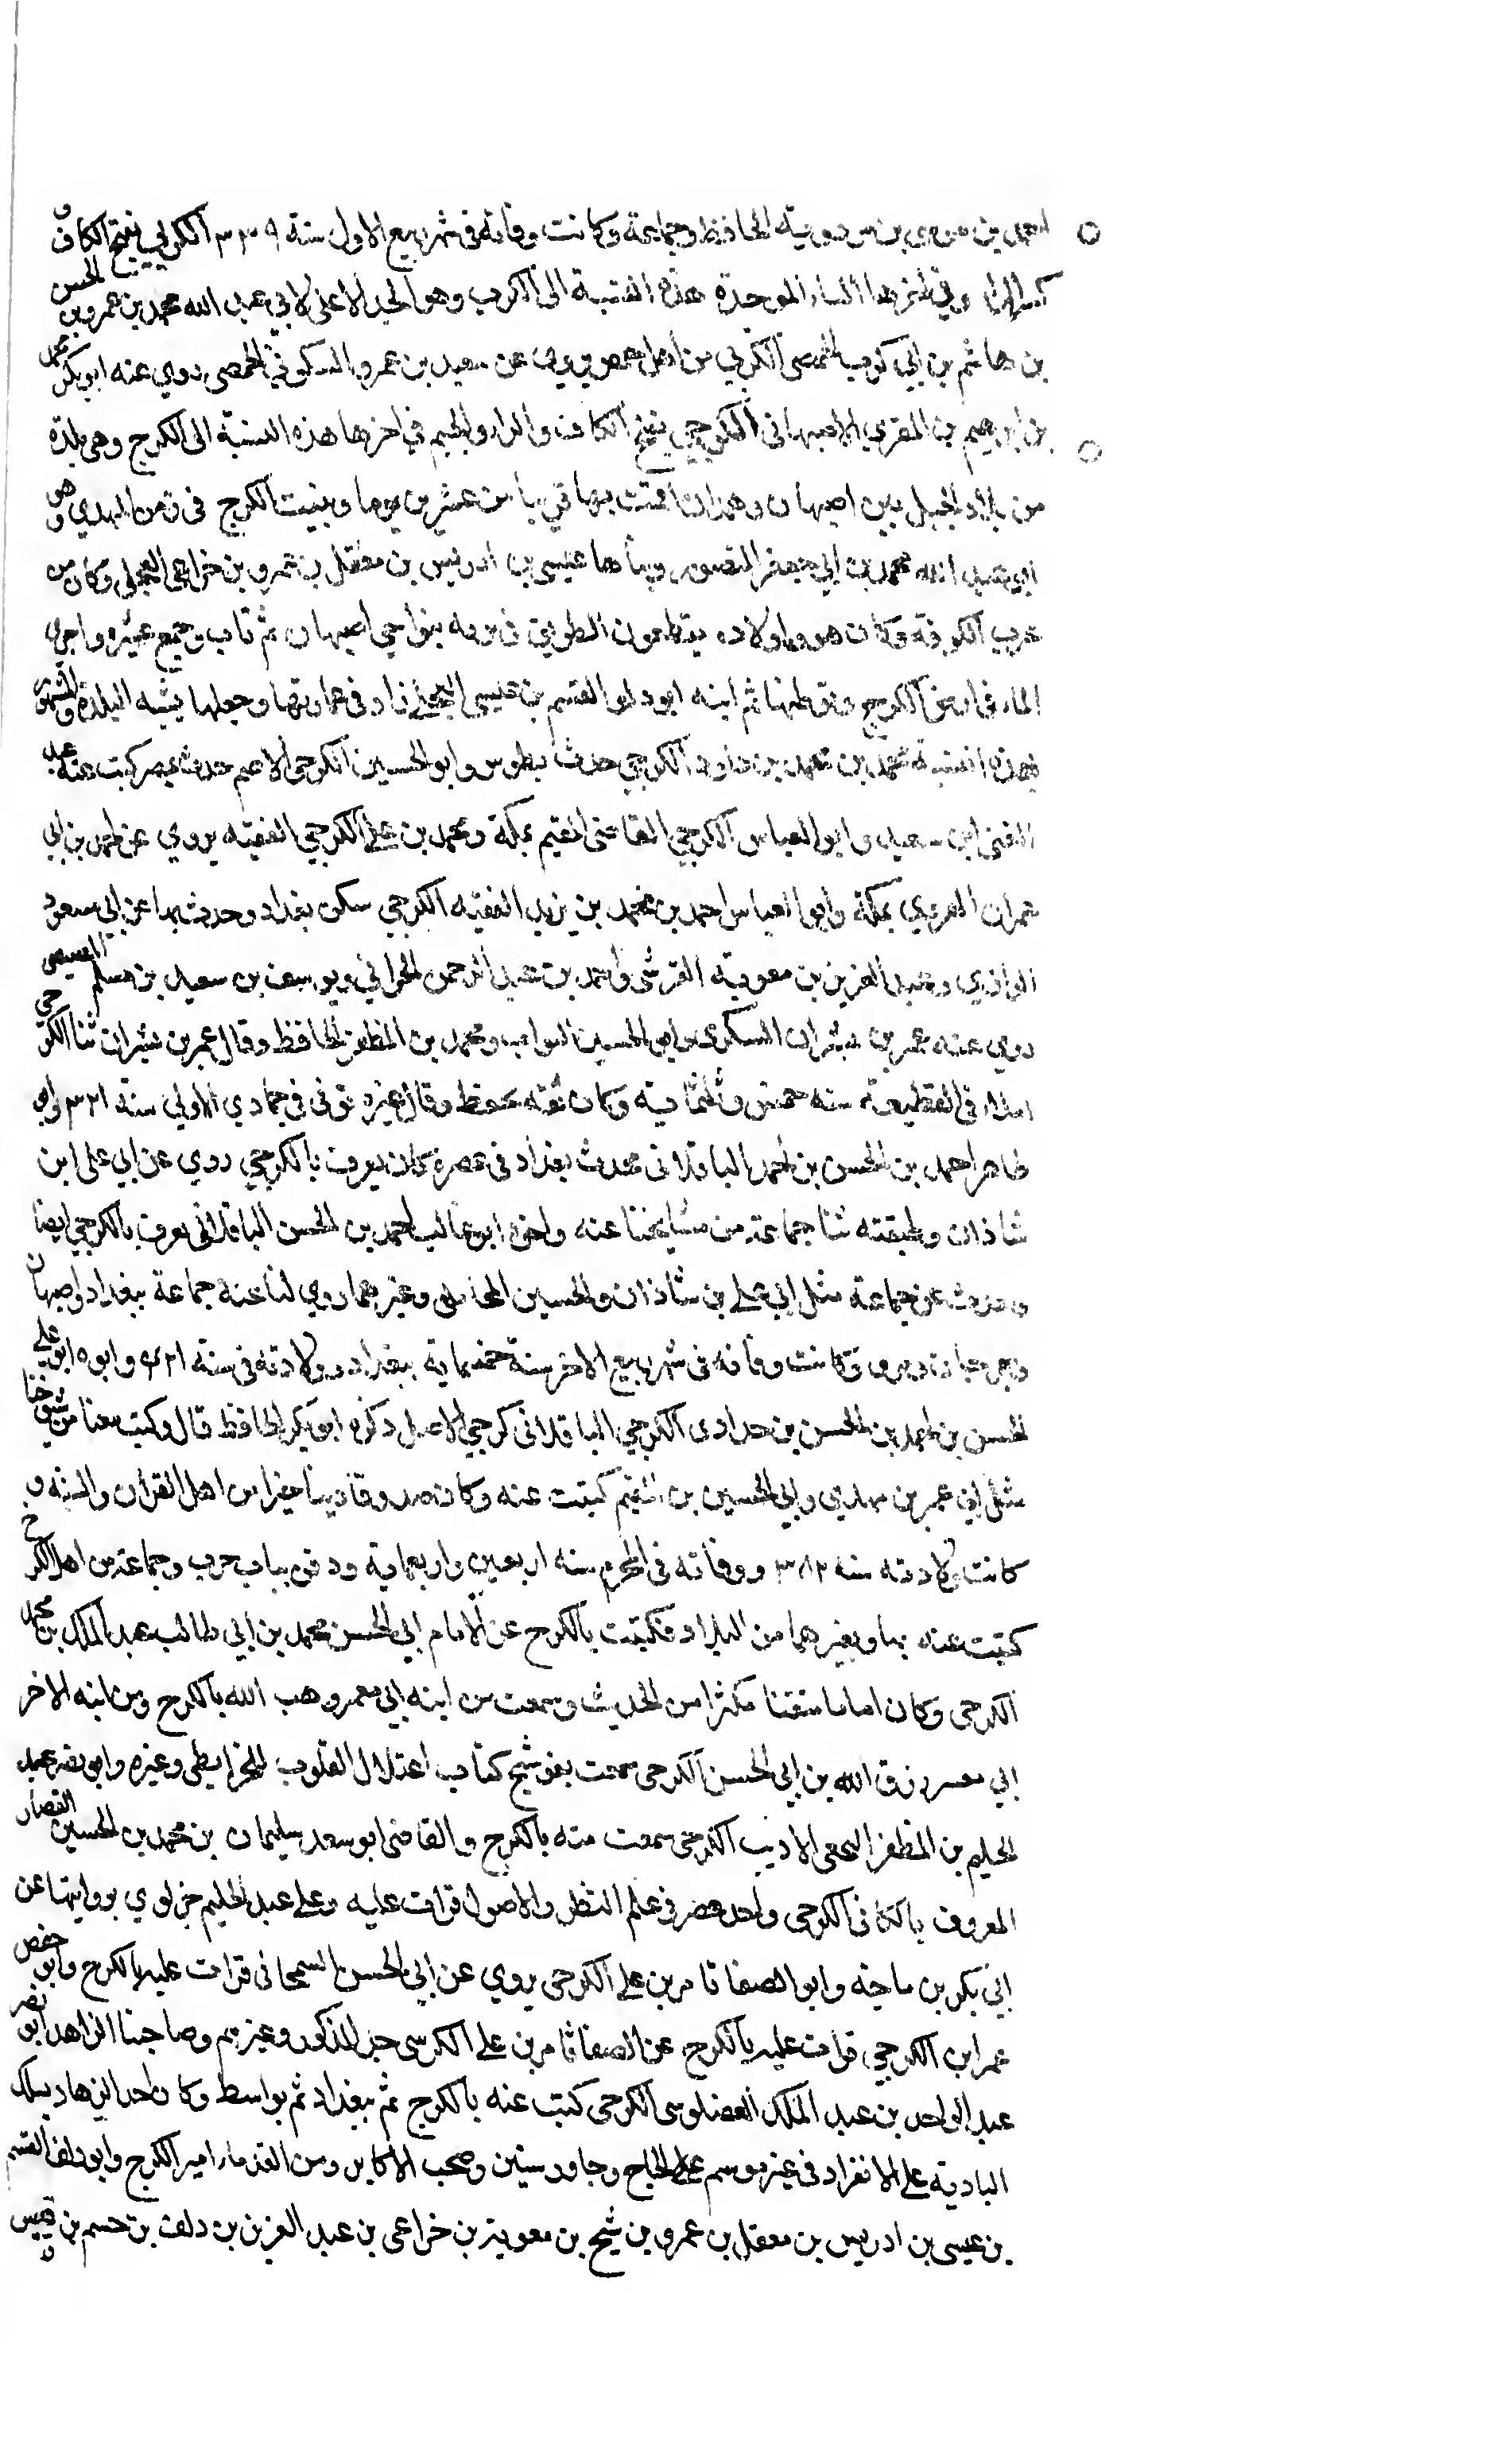 احمد بن موسى بن مردويه الحافظ وجماعة وكانت وفاته في شهر ربيع الاول سنة ٣٣٩ الكربي بفتح الكاف و
كسر الراء وفي اخرها الباء الموحدة هذه النسبة الى الكرب وهو الجد الاعلى لابي عبد الله محمد بن عمرو بن الحسن
بن هاشم بن ابي كرب الحمصي الكربي من اهل حمص يروي عن سعيد بن عمرو السكوني الحمصي روي عنه ابو بكر محمد
بن ابرهيم بن المقري الاصبهاني الكرجي بفتح الكاف والراء والجيم في اخرها هذه النسبة الى الكرج وهي بلدة
من بلاد الجبل بين اصبهان وهمدان اقمت بها قريبا من عشرين يوما وبنيت الكرج في زمن المهدي وهو
ابو عبد الله محمد بن ابي جعفر المنصور وبناها عيسى بن ادريس بن معقل بن عمرو بن خزاعي العجلي وكان من
عرب الكوفة وكان هو واولاده يقطعون الطريق في بنواحي اصبهان ثم تاب جمع عشيره واجرى
الماء في ارض الكرج وتوطنها ثم ابنه ابو دلف القسم بن عيسى العجلي زاد في عمارتها وجعلها بشبه البلدة والمشهور
بهذه النسبة محمد بن محمد بن داود الكرجي حدث بطرسوس وابو الحسين الكرجي الاصم حدث بمصر كتب عنه عبد
الغني ابن سعيد وابو العباس الكرجي القاضي المقيم بمكة ومحمد بن علي الكرجي الفقيه يروي عن احمد بن ابي
عمران الهروي بمكة وابو العباس احمد بن محمد بن يزيد الفقيه الكرجي سكن بغداد وحدث بها عن ابي مسعود
الرازي وعبد العزيز بن معوية القرشي واحمد بن عبد الرحمن الحراني ويوسف بن سعيد بن مسلم المصيصي
روي عنه عمر بن بشران السكري وابو الحسين البواب ومحمد بن المظفر الحافظ وقال عمر بن بشران ثنا الكرجي
املاء في القطيعة سنه خمس وثلثماية وكان ثقه يحفظ وقال غيره توفي في جمادي الاولي سنة ٣٢١ وابو
طاهر احمد بن الحسن بن احمد الباقلاني محدث بغداد في عصره كان يعرف بالكرجي روي عن ابي علي ابن
شاذان وطبقته ثنا جماعة من مشايخنا عنه واخوه ابو غالب احمد بن الحسن الباقلاني يعرف بالكرجي ايضا
وحدث عن جماعة مثل ابي علي بن شاذان والحسين المحاملي وغيرهما روي لنا عنه جماعة ببغداد واصبهان
وكانت وفاته في شهر ربيع الاخر سنة خمسماية ببغداد وولادته في سنة ٤٢١ وابوه ابو علي
الحسن بن احمد بن الحسن بن حدادى الكرجي الباقلاني كرجي الاصل ذكره ابو بكر الحافظ قال وكتب معنا من شيوخنا
مثل ابي عمر بن مهدي وابي الحسين بن المتيم كتبت عنه وكان صدوقا دينا خيرا من اهل القرآن والسنه و
كانت ولادته سنه ٣٨٢ ووفاته في المحرم سنه اربعين واربعماية ودفن بباب حرب وجماعة من اهل الكرج
كتبت عنه بها وبغيرهما من البلاد فكتبت بالكرج عن الامام ابي الحسن محمد بن ابي طالب عبد الملك بن محمد
الكرجي وكان اماما متقنا مكثرا من الحديث وسمعت من ابنه ابي معمر وهب الله بالكرج ومن ابنه الاخر
ابي معسر رزق الله بن ابي الحسن الكرجي سمعت بفوشنج كتاب اعتلال القلوب للخرايطي وغيره وابو نصر عبد
الحليم بن المظفر الاديب الكرجي سمعت منه بالكرج والقاضي ابو سعد سليمان بن محمد بن الحسين القصار
المعروف بالكافي الكرجي واحد عصره في علم النظر والاصول قرات عليه وعلي عبد الحليم جزء لوي بروايتها عن
ابي بكر بن ماجه وابو الصفا ثامر بن علي الكرجي يروي عن ابي الحسن قرات عليه بالكرج وابو حفص
عمر ابن الكرجي قرات عليه بالكرج عن الصفا ثامر بن علي الكرجي جد المذكور وغيرهم وصاحبنا الزاهد ابو نصر
عبد الواحد بن عبد الملك الفضلوسي الكرجي كتبت عنه بالكرج ثم ببغداد ثم بواسط وكان احد الزهاد يسلك
البادية علي الانفراد في غير موسم الحاج وجاور سنين وصحب الاكابر ومن القدماء امير الكرج وابو دلف القسم
بن عيسى بن ادريس بن معقل بن عمرو بن شيخ بن معوية بن خزاعي بن عبد العزيز بن دلف بن جسم بن قيس